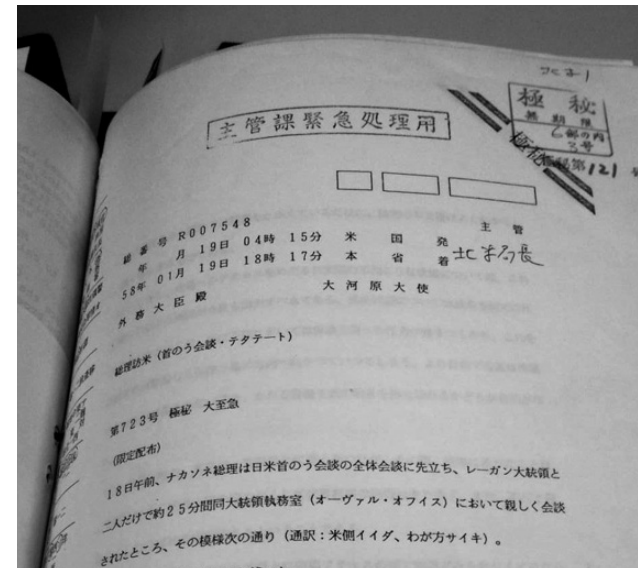 北米1
極秘
無期限
6部の内
3号
極秘
極秘第121号
主管課緊急処理用
総番号 R007548 主管
年 月 19日 04時 15分 米国 発
58年 01月 19日 18時 17分 本省 着 北米局長
外務大臣殿 大河原大使
総理訪米(首のう会談・テタテート)
第723号 極秘 大至急
(限定配布)
18日午前、ナカソネ総理は日米首のう会談の全体会談に先立ち、レーガン大統領と
二人だけで約25分間同大統領執務室(オーヴァル・オフィス)において親しく会談
されたところ、その模様次の通り(通訳:米側イイダ、わが方サイキ)。